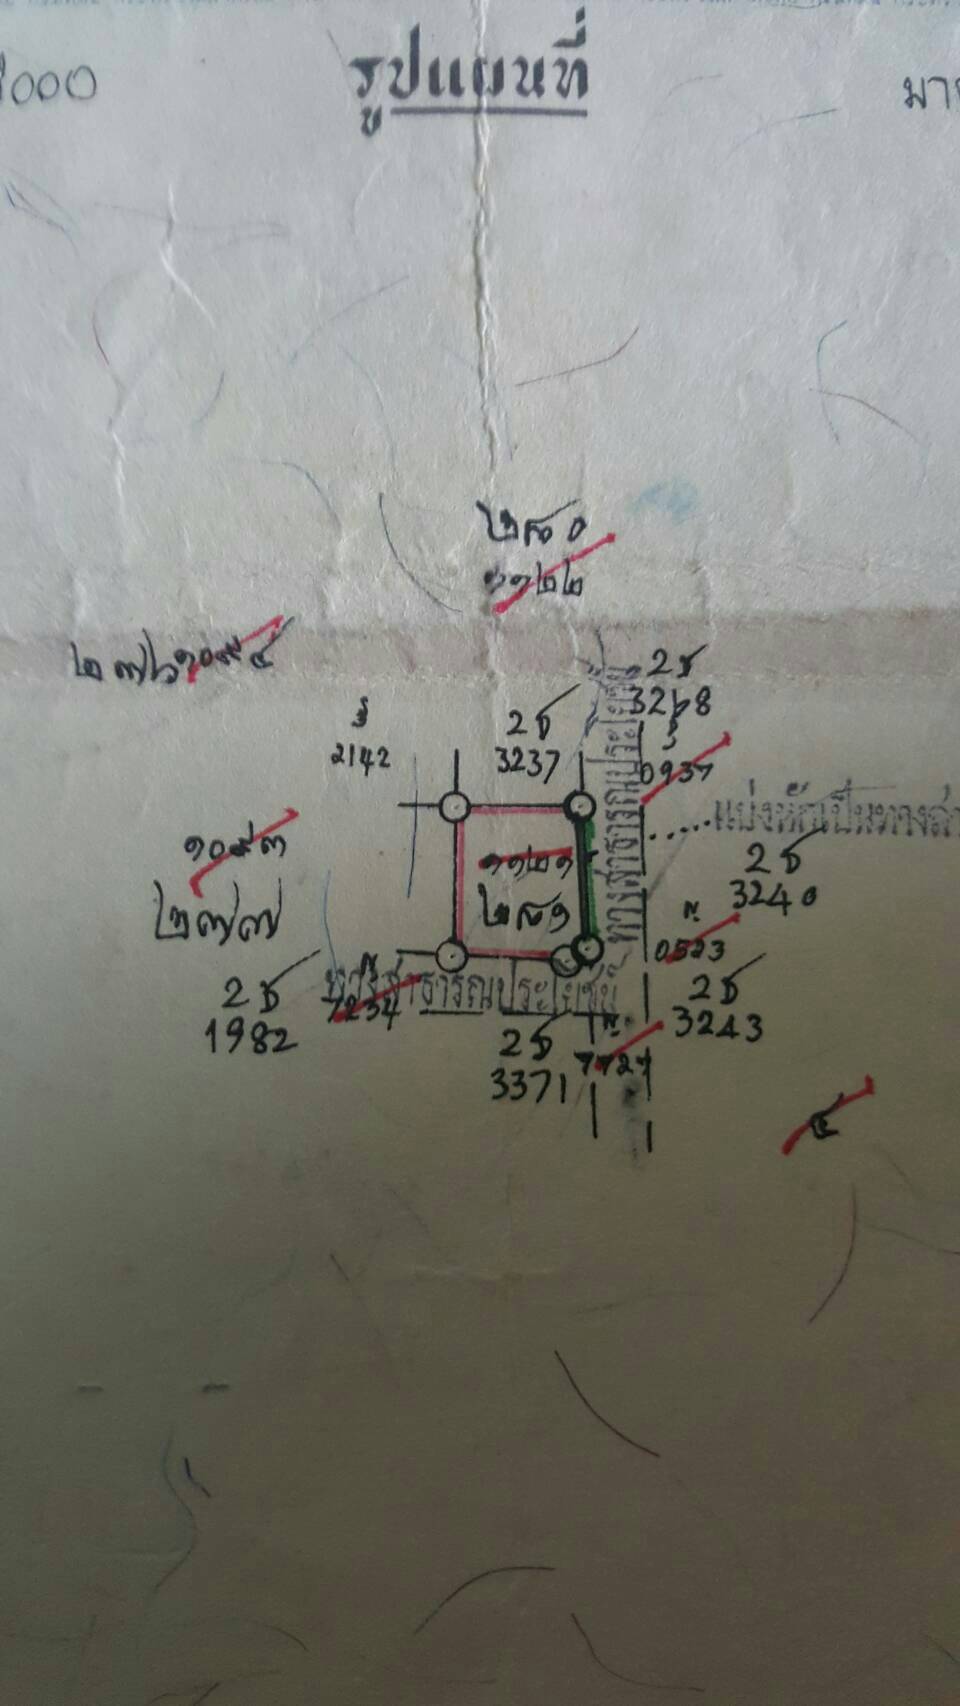 ๕๐๐๐
รูปแผนที่
มา
๒๘๐
๑๑๒๒
๒๗๖
๑๐๙๔
2ธ
3268
2142
2ธ
3237
0937
ทางสาธารณประโยชน์
แบ่งหักเป็นทางสา
๑๐๙๓
๒๗๗
๑๑๒๑
๒๘๑
2ธ
3240
0523
2ธ
1982
7234
ทางสาธารณประโยชน์
2ธ
3243
2ธ
3371
7727
๕